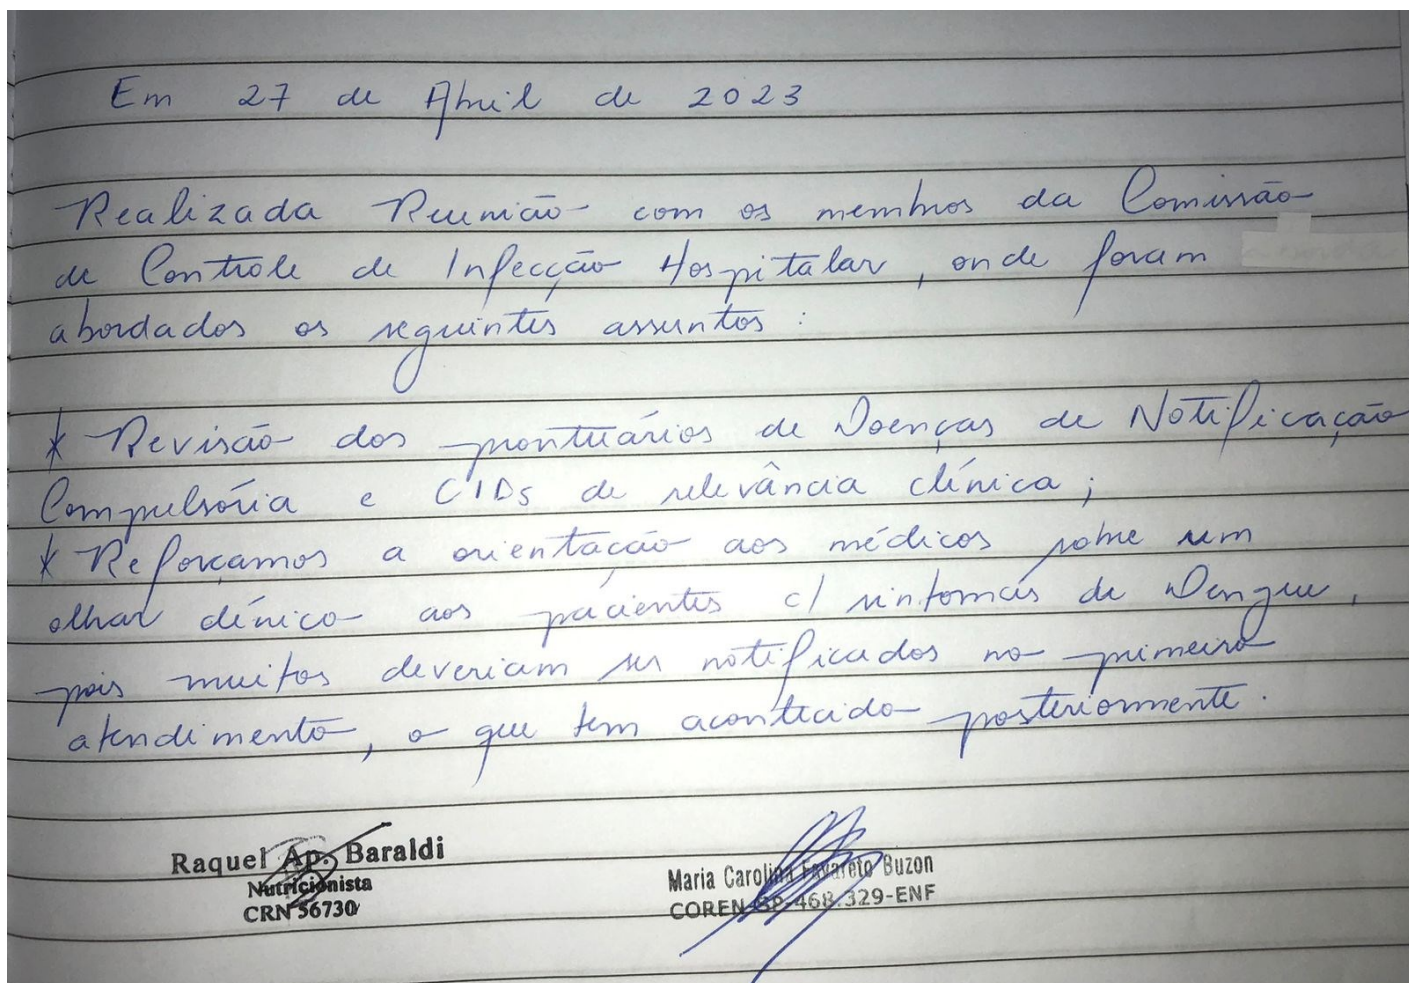 Em 27 de Abril de 2023
Realizada Reunião com os membros da Comissão
de Controle de Infecção Hospitalar, onde foram
abordados os seguintes assuntos:
* Revisão dos prontuários de Doenças de Notificação
Compulsória e CIDs de relevância clínica;
* Reforçamos a orientação aos médicos sobre um
olhar clínico aos pacientes c/ sintomas de Dengue,
pois muitos deveriam ser notificados no primeiro
atendimento, o que tem acontecido posteriormente.
Raquel Ap. Baraldi
Nutricionista
CRN 56730
Maria Carolina Favareto Buzon
COREN-SP-468.329-ENF